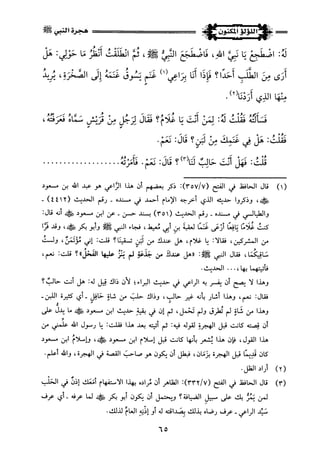 اللؤلؤ المكنون
هجرة النبي ﷺ
لَهُ: اضْطَجِعْ يَا نَبِيَّ اللهِ، فَاضْطَجَعَ النَّبِيُّ ﷺ، ثُمَّ انْطَلَقْتُ أَنْظُرُ مَا حَوْلِي: هَلْ
أَرَى مِنَ الطَّلَبِ أَحَدًا؟ فَإِذَا أَنَا بِرَاعِي(١) غَنَمٍ يَسُوقُ غَنَمَهُ إِلَى الصَّخْرَةِ، يُرِيدُ
مِنْهَا الذِي أَرَدْنَا(٢).
فَسَأَلْتُهُ فَقُلْتُ لَهُ: لِمَنْ أَنْتَ يَا غُلَامُ؟ فَقَالَ لِرَجُلٍ مِنْ قُرَيْشٍ سَمَّاهُ فَعَرَفْتُهُ،
فَقُلْتُ: هَلْ فِي غَنَمِكَ مِنْ لَبَنٍ؟ قَالَ: نَعَمْ.
قُلْتُ: فَهَلْ أَنْتَ حَالِبٌ لَنَا(٣)؟ قَالَ: نَعَمْ. فَأَمَرْتُهُ ....................
(١) قال الحافظ في الفتح (٣٥٧/٧): ذكر بعضهم أن هذا الرَّاعي هو عبد الله بن مسعود
، وذكروا حديثه الذي أخرجه الإمام أحمد في مسنده ـ رقم الحديث (٤٤١٢) ـ
والطيالسي في مسنده ـ رقم الحديث (٣٥١) بسند حسن ـ عن ابن مسعود أنه قال:
كنتُ غُلامًا يَافِعًا أرْعَى غَنَمًا لعقبة بن أبي مُعيط، فجاء النبي ﷺ وأبو بكر ، وقد فَرَّا
من المشركين، فقالا: يا غلام، هل عندك من لَبَنٍ تسقينا؟ قلت: إني مُؤْتَمَنٌ، ولستُ
سَاقِيكُمَا، فقال النبي ﷺ: «هل عندك من جَذَعَةٍ لم يَنْزُ عليها الفَحْلُ»؟ قلت: نعم،
فأتيتهما بها، . . . الحديث.
وهذا لا يصح أن يفسر به الراعي في حديث البراء؛ لأن ذاك قيل له: هل أنت حالب؟
فقال: نعم، وهذا أشار بأنه غير حالب، وذاك حلب من شاة حَافِلٍ ـ أي كثيرة اللبن ـ
وهذا من شاةٍ لم تُطرق ولم تَحمل، ثم إن في بقية حديث ابن مسعود ما يدل على
أن قصته كانت قبل الهجرة لقوله فيه: ثم أتيته بعد هذا فقلت: يا رسول الله علِّمني من
هذا القول، فإن هذا يُشعر بأنها كانت قبل إسلام ابن مسعود ، وإسلامُ ابن مسعود
كان قَدِيمًا قبل الهجرة بزمَان، فبطل أن يكون هو صاحبَ القصة في الهجرة، والله أعلم.
(٢) أراد الظل.
(٣) قال الحافظ في الفتح (٣٣٢/٧): الظاهر أن مُراده بهذا الاستفهام أمعَك إذنٌ في الحَلْب
لمن يَمُرُّ بك على سبيل الضيافة؟ ويحتمل أن يكون أبو بكر لما عرفه ـ أي عرف
سَيِّد الراعي ـ عرف رضاه بذلك بصَداقته له أو إذْنِه العامِّ لذلك.
٦٥